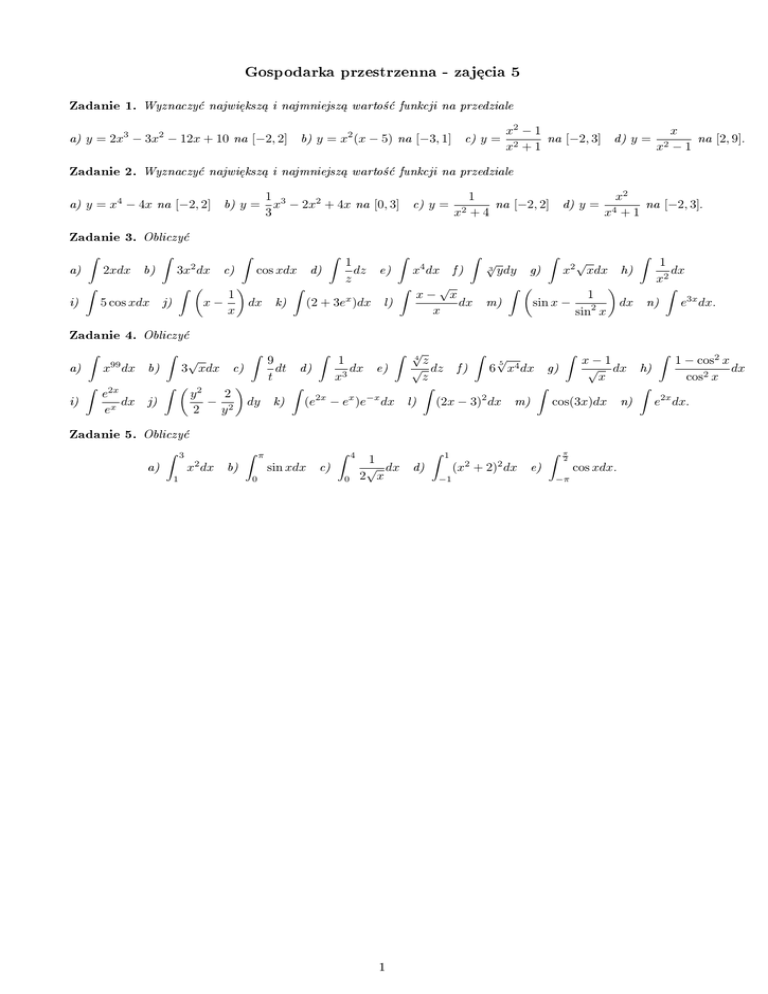 Gospodarka przestrzenna - zajęcia 5
Zadanie 1. Wyznaczyć największą i najmniejszą wartość funkcji na przedziale
a) $y = 2x^3 - 3x^2 - 12x + 10$ na $[-2, 2]$ b) $y = x^2(x - 5)$ na $[-3, 1]$ c) $y = \frac{x^2 - 1}{x^2 + 1}$ na $[-2, 3]$ d) $y = \frac{x}{x^2 - 1}$ na $[2, 9]$.
Zadanie 2. Wyznaczyć największą i najmniejszą wartość funkcji na przedziale
a) $y = x^4 - 4x$ na $[-2, 2]$ b) $y = \frac{1}{3}x^3 - 2x^2 + 4x$ na $[0, 3]$ c) $y = \frac{1}{x^2 + 4}$ na $[-2, 2]$ d) $y = \frac{x^2}{x^4 + 1}$ na $[-2, 3]$.
Zadanie 3. Obliczyć
a) $\int 2xdx$ b) $\int 3x^2dx$ c) $\int \cos xdx$ d) $\int \frac{1}{z}dz$ e) $\int x^4dx$ f) $\int \sqrt[3]{y}dy$ g) $\int x^2\sqrt{x}dx$ h) $\int \frac{1}{x^2}dx$
i) $\int 5\cos xdx$ j) $\int \left(x - \frac{1}{x}\right)dx$ k) $\int (2 + 3e^x)dx$ l) $\int \frac{x - \sqrt{x}}{x}dx$ m) $\int \left(\sin x - \frac{1}{\sin^2 x}\right)dx$ n) $\int e^{3x}dx$.
Zadanie 4. Obliczyć
a) $\int x^{99}dx$ b) $\int 3\sqrt{x}dx$ c) $\int \frac{9}{t}dt$ d) $\int \frac{1}{x^3}dx$ e) $\int \frac{\sqrt[4]{z}}{\sqrt{z}}dz$ f) $\int 6\sqrt[5]{x^4}dx$ g) $\int \frac{x - 1}{\sqrt{x}}dx$ h) $\int \frac{1 - \cos^2 x}{\cos^2 x}dx$
i) $\int \frac{e^{2x}}{e^x}dx$ j) $\int \left(\frac{y^2}{2} - \frac{2}{y^2}\right)dy$ k) $\int (e^{2x} - e^x)e^{-x}dx$ l) $\int (2x - 3)^2dx$ m) $\int \cos(3x)dx$ n) $\int e^{2x}dx$.
Zadanie 5. Obliczyć
a) $\int_1^3 x^2dx$ b) $\int_0^\pi \sin xdx$ c) $\int_0^4 \frac{1}{2\sqrt{x}}dx$ d) $\int_{-1}^1 (x^2 + 2)^2dx$ e) $\int_{-\pi}^{\frac{\pi}{2}} \cos xdx$.
1